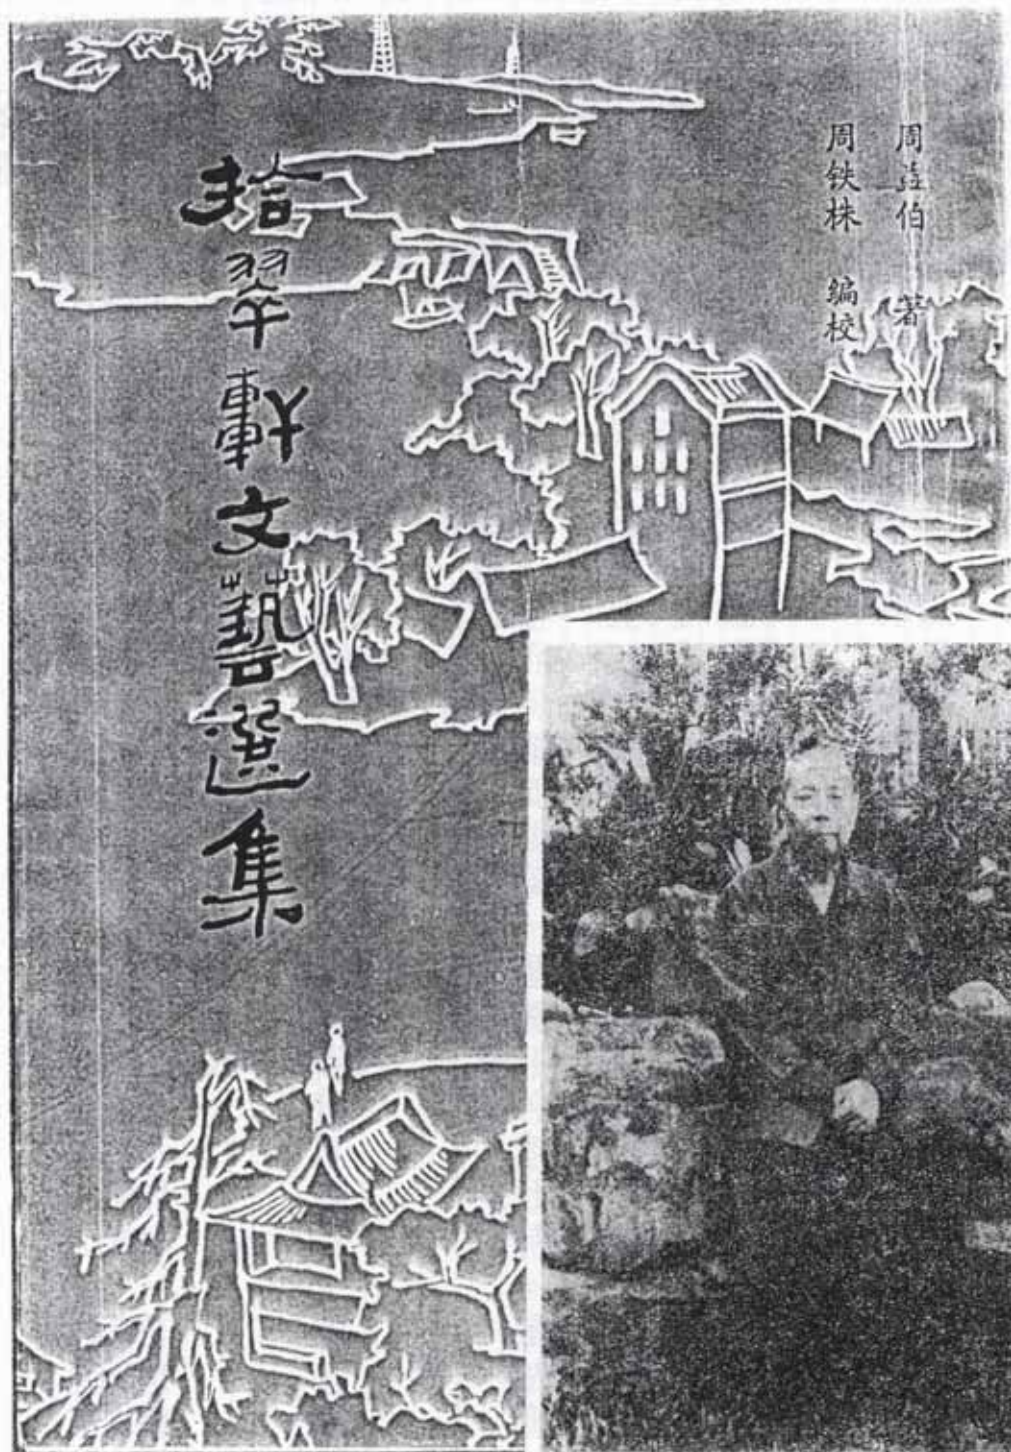 周垚伯 著
周铁株 编校
拾翠軒文藝選集